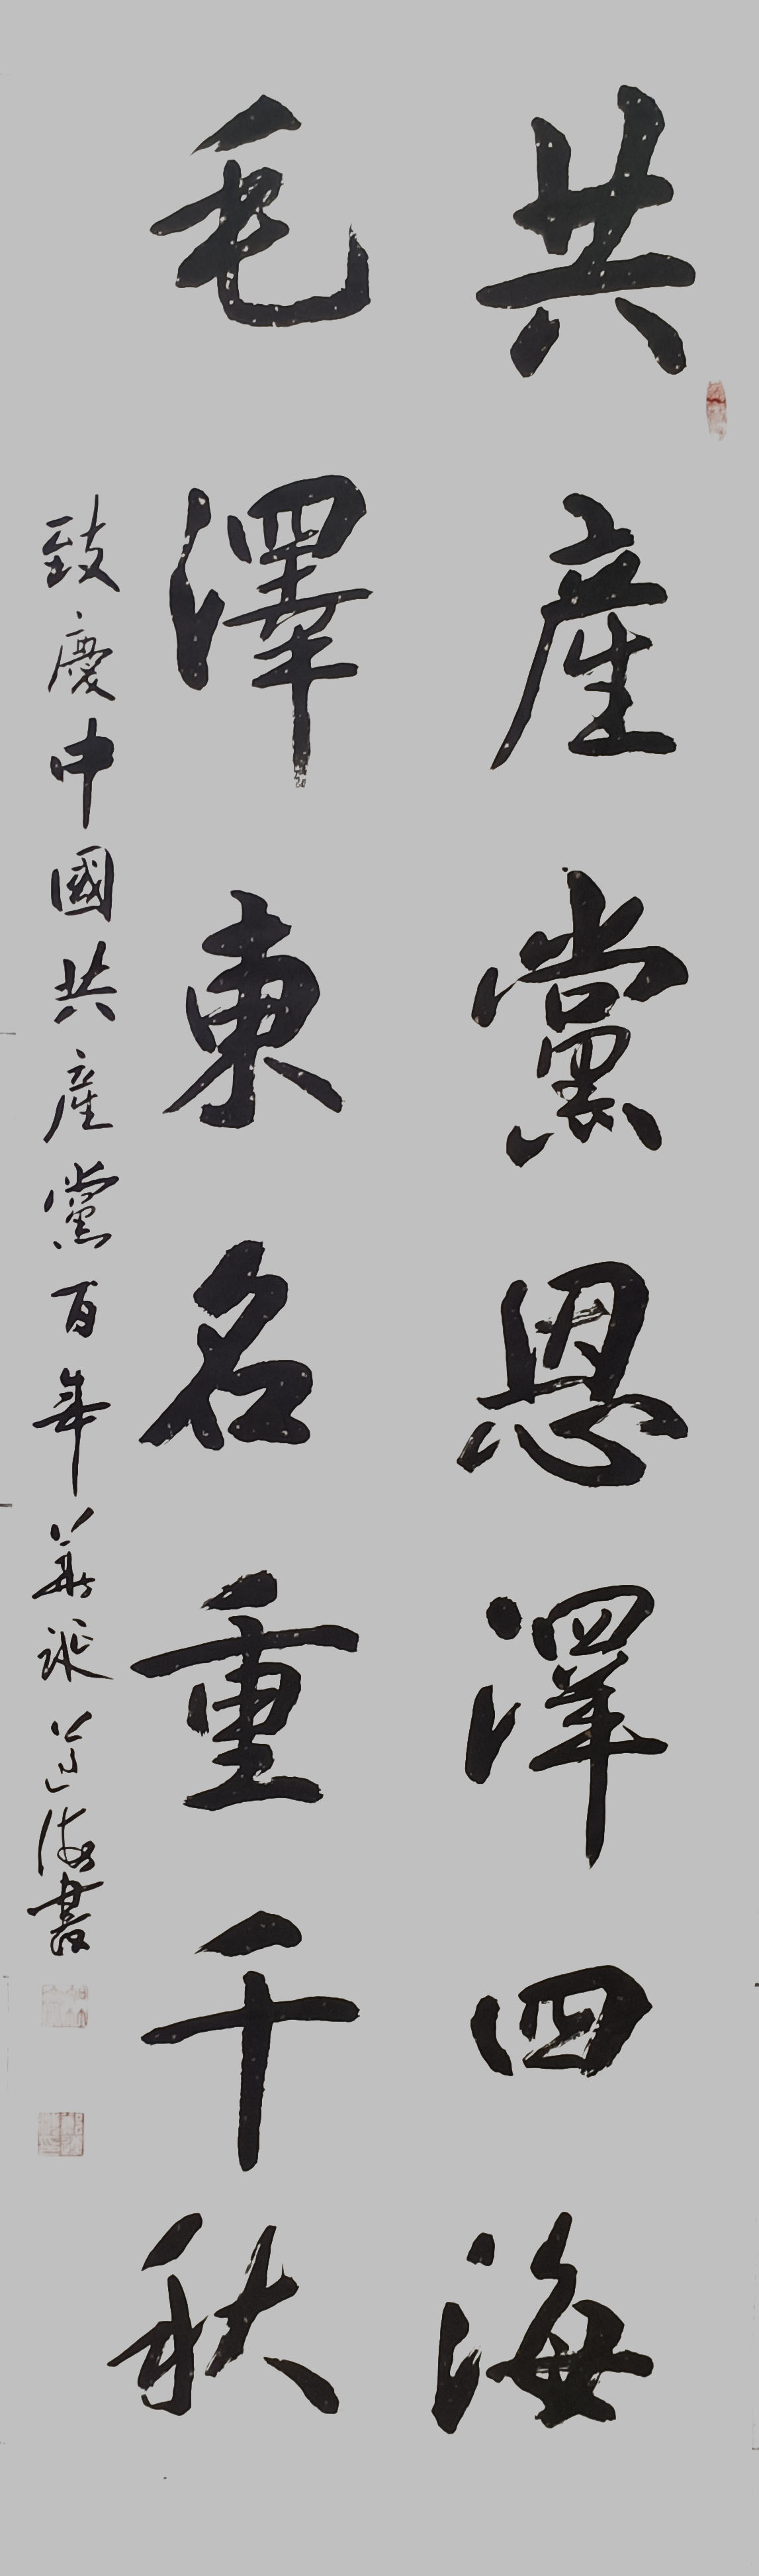 共產黨恩澤四海
毛澤東名重千秋
致慶中國共產黨百年 海書